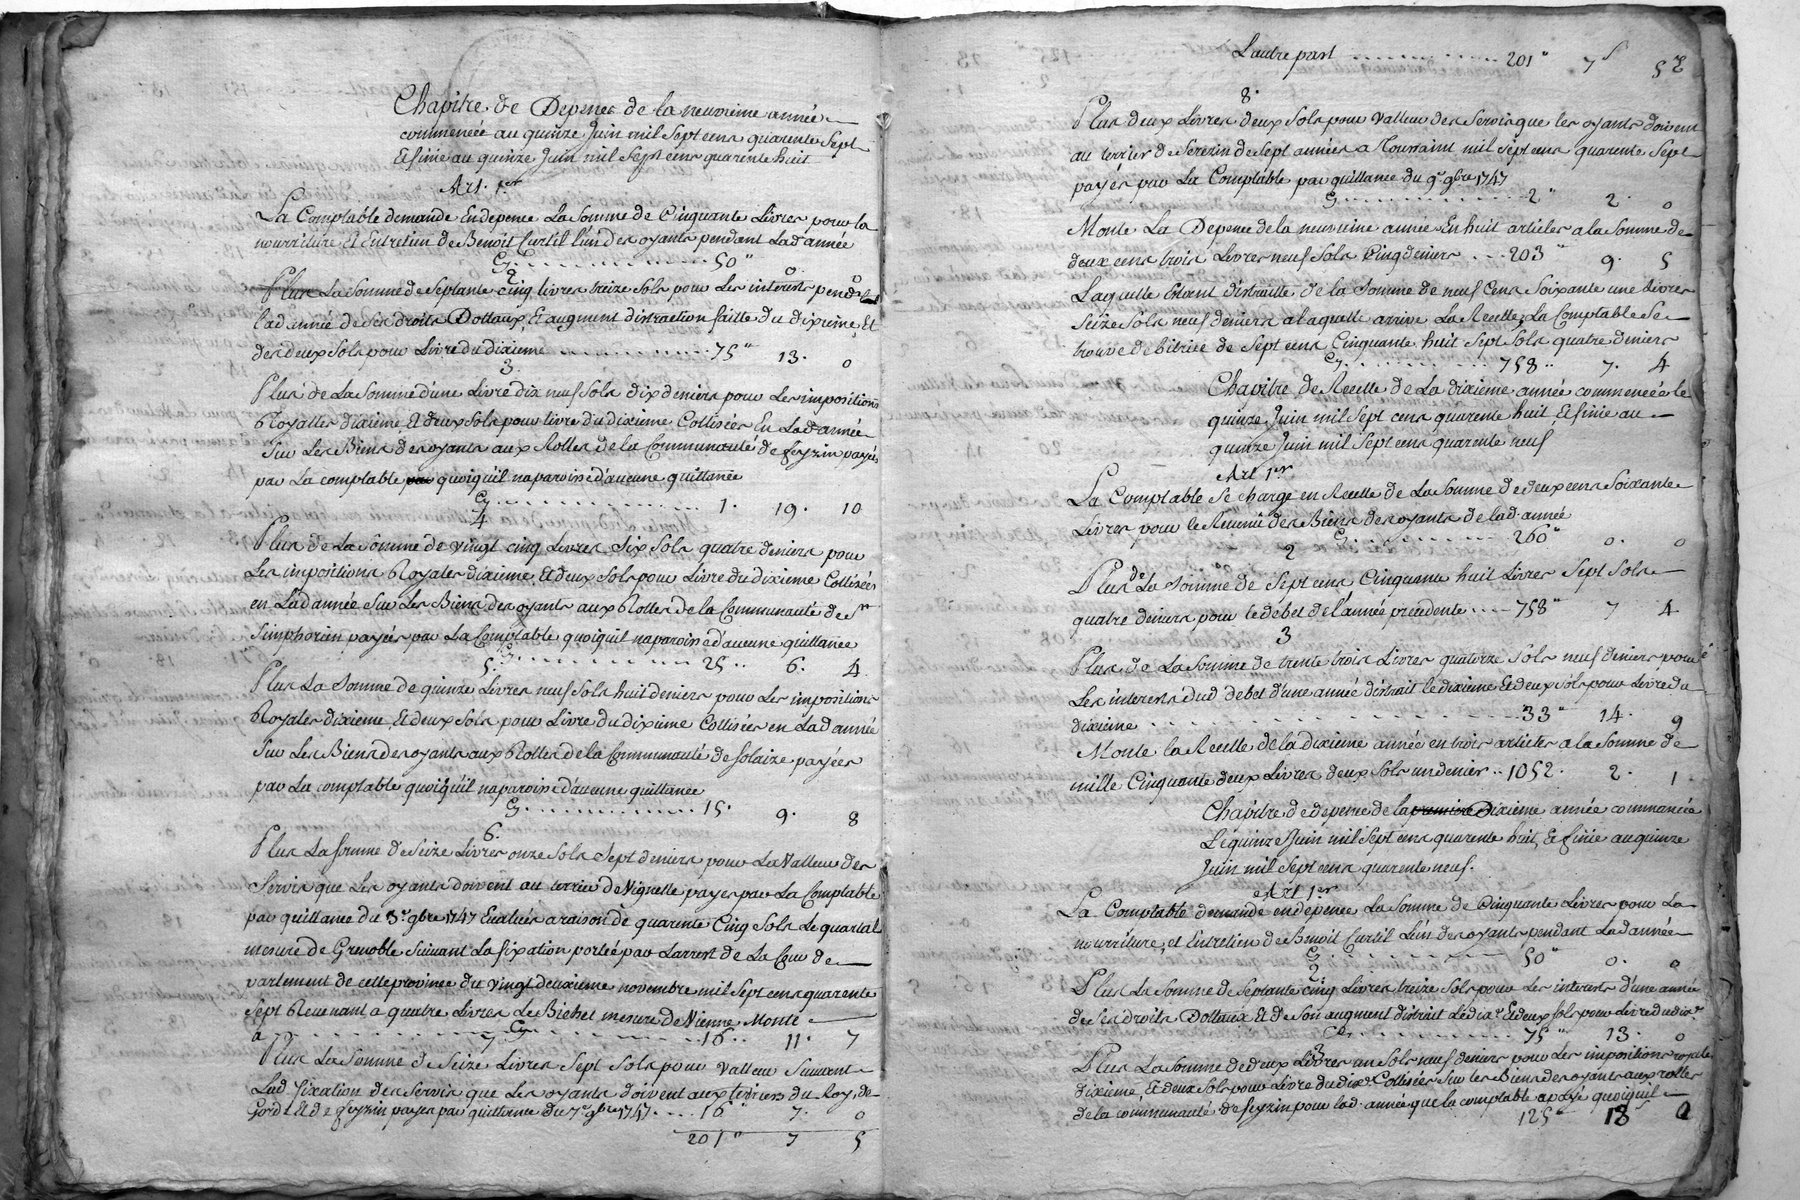 Chapitre de Depence de la neuvieme année
commencée au quinze Juin mil sept cens quarente sept
Et finie au quinze Juin mil sept cens quarente huit
Art. 1er
La Comptable demande En depence La Somme de Cinquante Livres pour la
nourriture Et Entretien de Benoit Curtil l'un des oyants pendant Lad année
Cy 50" 0 0
2
La Somme de Septante cinq livres treize Sols pour Les interests pendt
lad année de ses droits Dottaux Et augment distraction faitte du dixieme Et
des deux Sols pour Livre du dixieme 75" 13. 0
3.
Plus de La Somme d'une Livre dix neuf Sols dix deniers pour Les impositions
Royalles dixieme Et deux Sols pour livre du dixieme Cottisées En Lad année
Sur Les Biens des oyants aux Rolles de la Communauté de feyzin payés
par La comptable quoiquil naparoisse d'aucune quittance
Cy 1. 19. 10
4
Plus de La Somme de vingt cinq Livres Six Sols quatre deniers pour
Les impositions Royales dixieme Et deux Sols pour Livre du dixieme Cottisées
en Lad année Sur Les Biens des oyants aux Rolles de la Communauté de St
Simphorien payés par La Comptable quoiquil naparoisse d'aucune quittance
Cy 25 .. 6. 4
5.
Plus La Somme de quinze Livres neuf Sols huit deniers pour Les impositions
Royales dixieme Et deux Sols pour Livre du dixieme Cottisées en Lad année
Sur Les Biens des oyants aux Rolles de la Communauté de solaize payées
par La comptable quoiquil naparoisse d'aucune quittance
Cy 15. 9. 8
6.
Plus La somme de Seize Livres onze Sols Sept deniers pour La Valleur des
Servis que Les oyants doivent au terrier de Vignette payes par La Comptable
par quittance du 3e 9bre 1747 Evalués a raison de quarente Cinq Sols Le quartal
mesure de Grenoble Suivant La fixation portée par Larrest de La Cour de
parlement de cette province du vingt deuxieme novembre mil sept cens quarente
sept Revenant a quatre Livres Le Bichet mesure de Vienne Monte
a Cy 16 .. 11. 7
7
Plus La Somme de Seize Livres Sept Sols pour valleur Suivant
Lad. fixation des Servis que Les oyants doivent aux terriers du Roy, de
Gord Et de feyzin payes par quittance du 7e 9bre 1747 16" 7. 0
201" 7 5
L'autre part 201" 7s 5d
8.
Plus deux Livres deux Sols pour Valleur des Servis que les oyants doivent
au terrier de Serezin de Sept années a Toussaint mil sept cens quarente sept
payes par La Comptable par quittance du 9e 9bre 1747
Cy 2" 2. 0
Monte La Depence de la neuvieme année En huit articles a la Somme de
deux cens trois Livres neuf Sols Cinq deniers 203" 9. 5
Laquelle Estant distraitte de la Somme de neuf Cens Soixante une Livres
Seize Sols neuf deniers a laquelle arrive La Recette La Comptable Se
trouve debitrice de Sept cens Cinquante huit Sept Sols quatre deniers
Cy 758 .. 7. 4
Chapitre de Recette de La dixieme année commencée le
quinze Juin mil Sept cens quarente huit, Et finie au
quinze Juin mil Sept cens quarente neuf
Art 1er
La Comptable Se charge en Recette de La Somme de deux cens Soixante
Livres pour le Revenu des Biens des oyants de lad. année
Cy 260" 0. 0
2
Plus de La Somme de Sept cens Cinquante huit Livres Sept Sols
quatre deniers pour le debet de l'année precedente 758" 7 4.
3
Plus de La Somme de trente trois Livres quatorze Sols neuf deniers pour
Les interests dud debet d'une année distrait le dixieme Et deux sols pour Livre du
dixieme 33" 14. 9
Monte la Recette de la dixieme année en trois articles a la Somme de
mille Cinquante deux Livres deux Sols un denier .. 1052. 2. 1
Chapitre de depence de la premiere Dixieme année commencée
Le quinze Juin mil Sept cens quarente huit, Et finie au quinze
Juin mil Sept cens quarente neuf.
Art 1er
La Comptable demande en depence La Somme de Cinquante Livres pour La
nourriture, et Entretien de Benoit Curtil L'un des oyants pendant Lad année
Cy 50" 0. 0
2
Plus La Somme de Septante cinq Livres treize Sols pour Les interests d'une année
de Ses droits Dottaux Et de Son augment distrait Le dixe Et deux sols pour Livre du dixe
Cy 75" 13. 0
3
Plus La Somme de deux Livres un Sols neuf deniers pour Les impositions royales
dixieme, Et deux Sols pour Livre du dixe Cottisées Sur Les Biens des oyants aux rolles
de la communauté de feyzin pour lad. année que la comptable a paye quoiquil
125" 18s 0